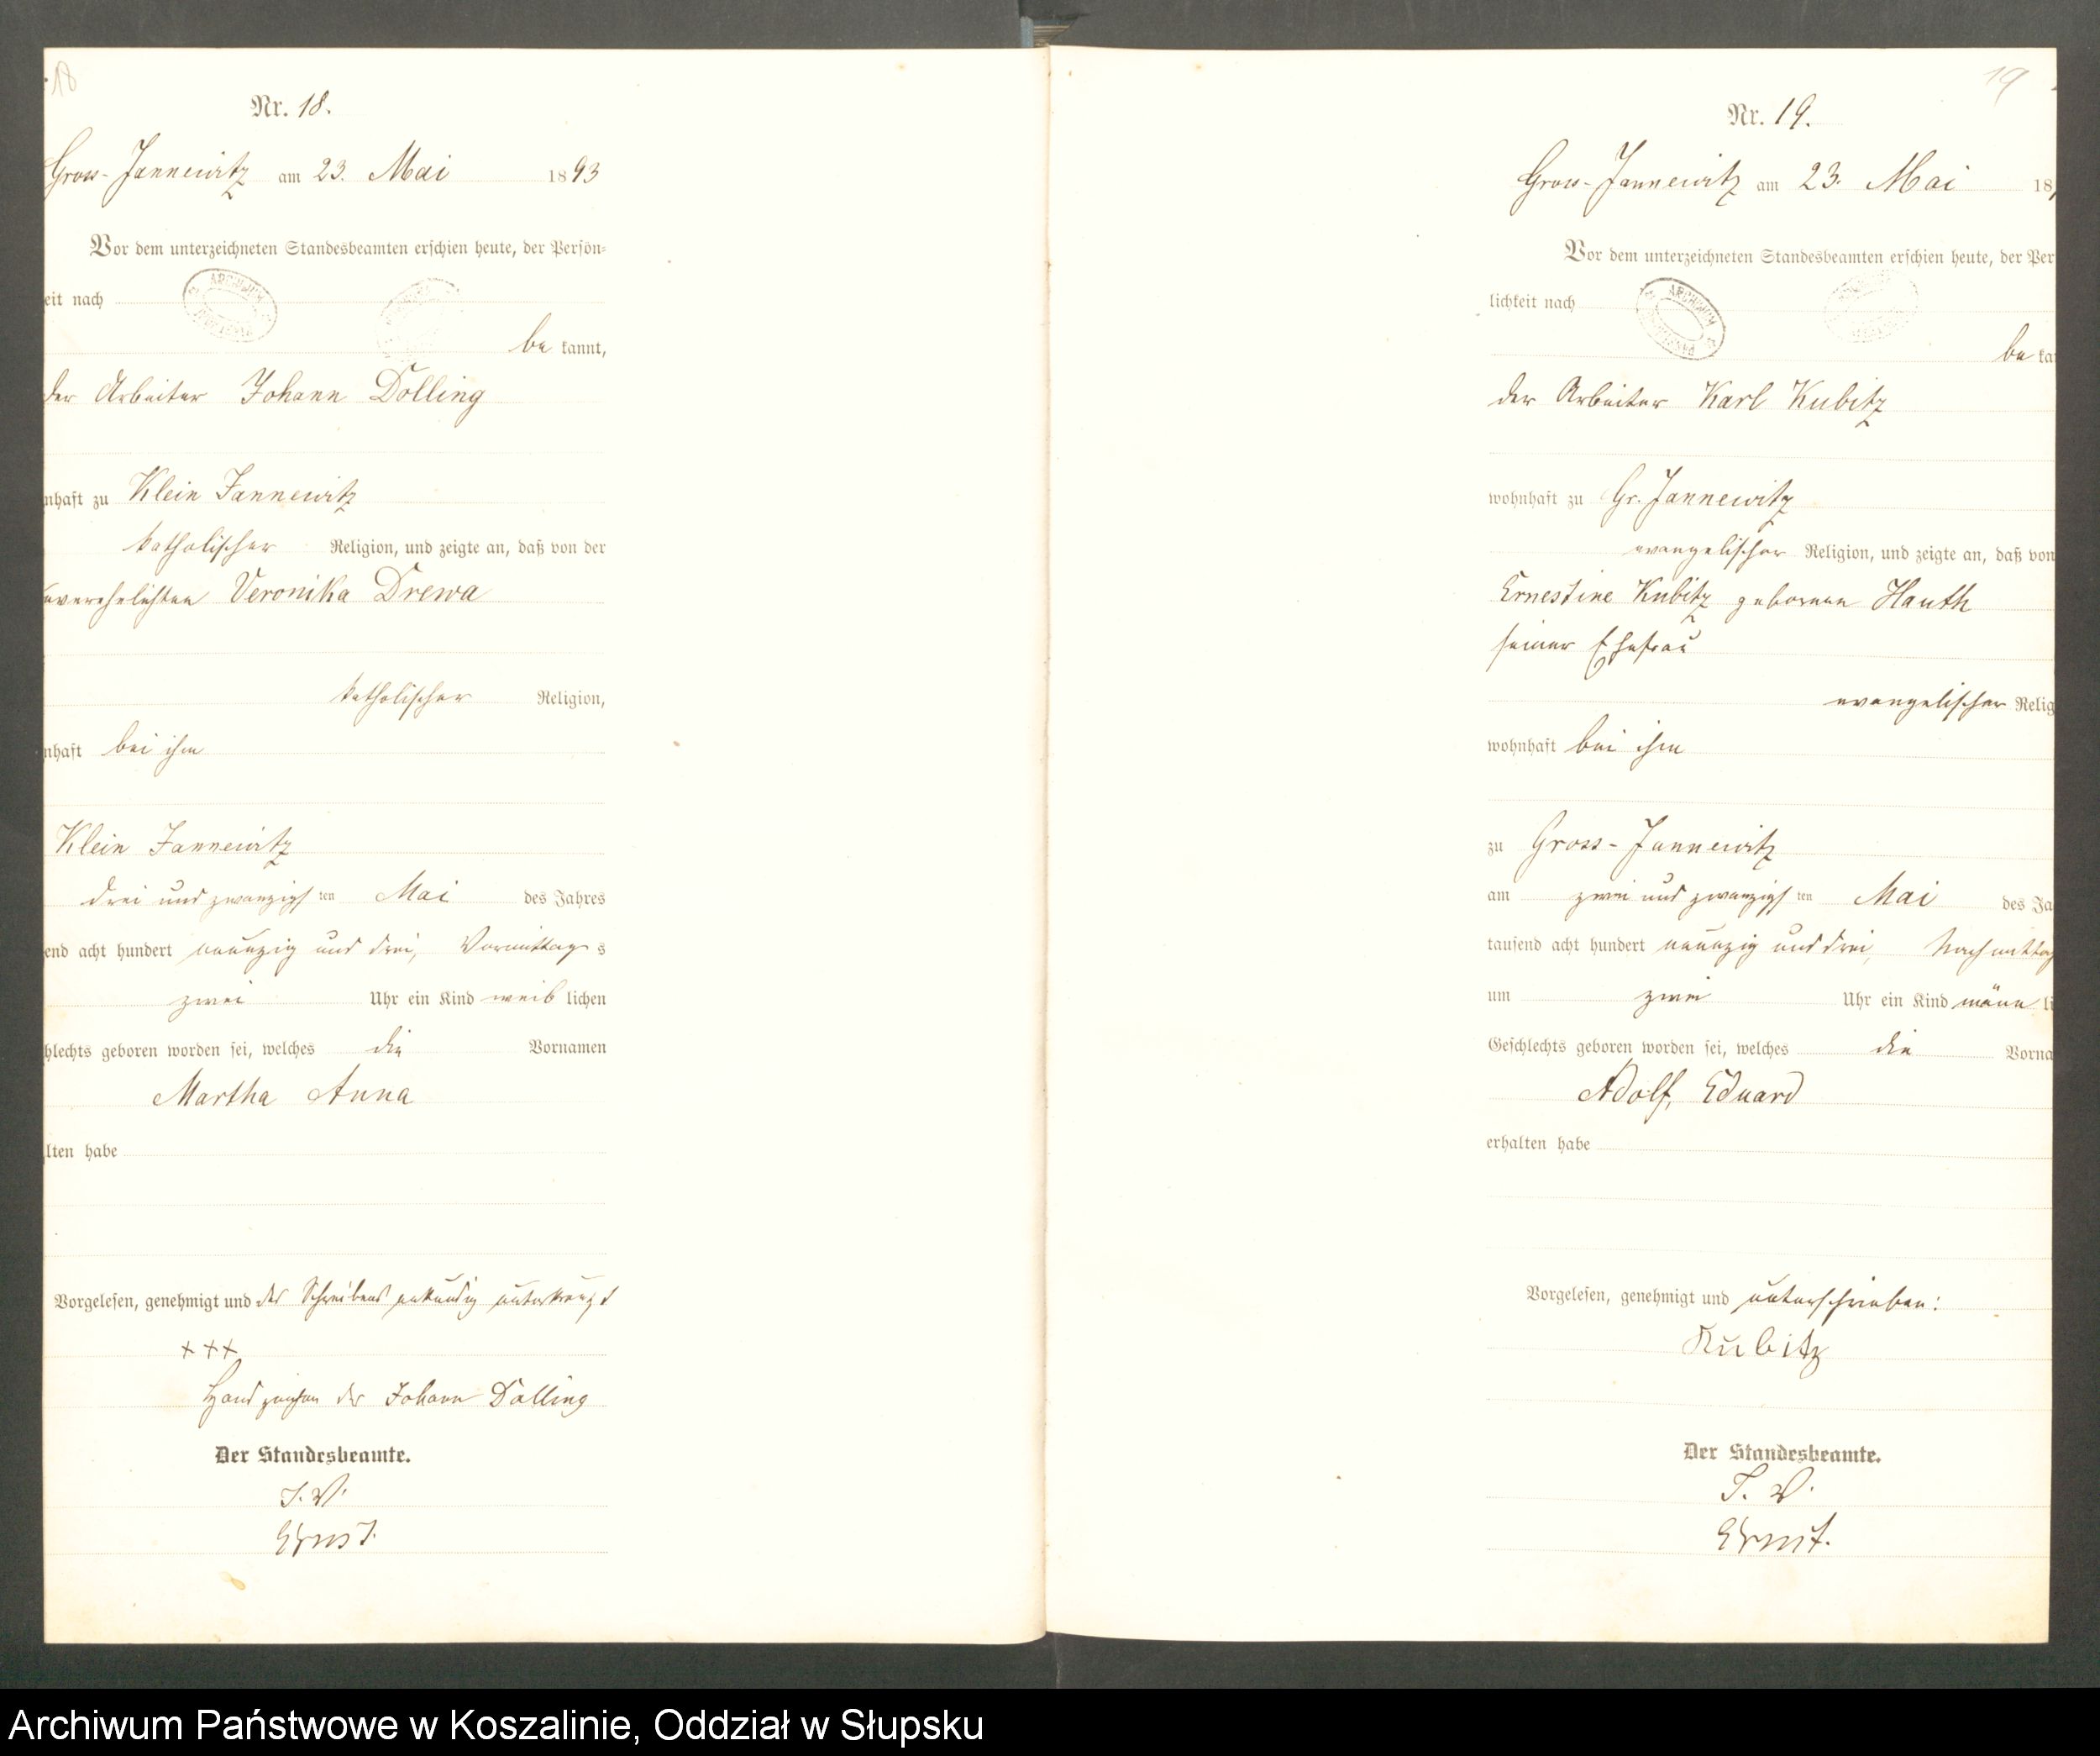 18
Nr. 18.
Gross-Jannewitz am 23. Mai 1893
Vor dem unterzeichneten Standesbeamten erschien heute, der Persön-
eit nach
be kannt,
der Arbeiter Johann Dolling
nhaft zu Klein Jannewitz
katholischer Religion, und zeigte an, daß von der
unverehelichten Veronika Drewa
katholischer Religion,
nhaft bei ihm
Klein Jannewitz
drei und zwanzigsten Mai des Jahres
end acht hundert neunzig und drei, Vormittags
zwei Uhr ein Kind weiblichen
hlechts geboren worden sei, welches die Vornamen
Martha Anna
lten habe
Vorgelesen, genehmigt und des Schreibens unkundig unterkreuzt
+++
Handzeichen des Johann Dolling
Der Standesbeamte.
I. V.
Ernst.
19
Nr. 19.
Gross-Jannewitz am 23. Mai 18
Vor dem unterzeichneten Standesbeamten erschien heute, der Per
lichkeit nach
be ka
der Arbeiter Karl Kubitz
wohnhaft zu Gr. Jannewitz
evangelischer Religion, und zeigte an, daß von
Ernestine Kubitz geborenen Hauth
seiner Ehefrau
evangelischer Relig
wohnhaft bei ihm
zu Gross-Jannewitz
am zwei und zwanzigsten Mai des Ja
tausend acht hundert neunzig und drei, Nachmittag
um zwei Uhr ein Kind männli
Geschlechts geboren worden sei, welches die Vorna
Adolf, Eduard
erhalten habe
Vorgelesen, genehmigt und unterschrieben:
Kubitz
Der Standesbeamte.
I. V.
Ernst.
Archiwum Państwowe w Koszalinie, Oddział w Słupsku